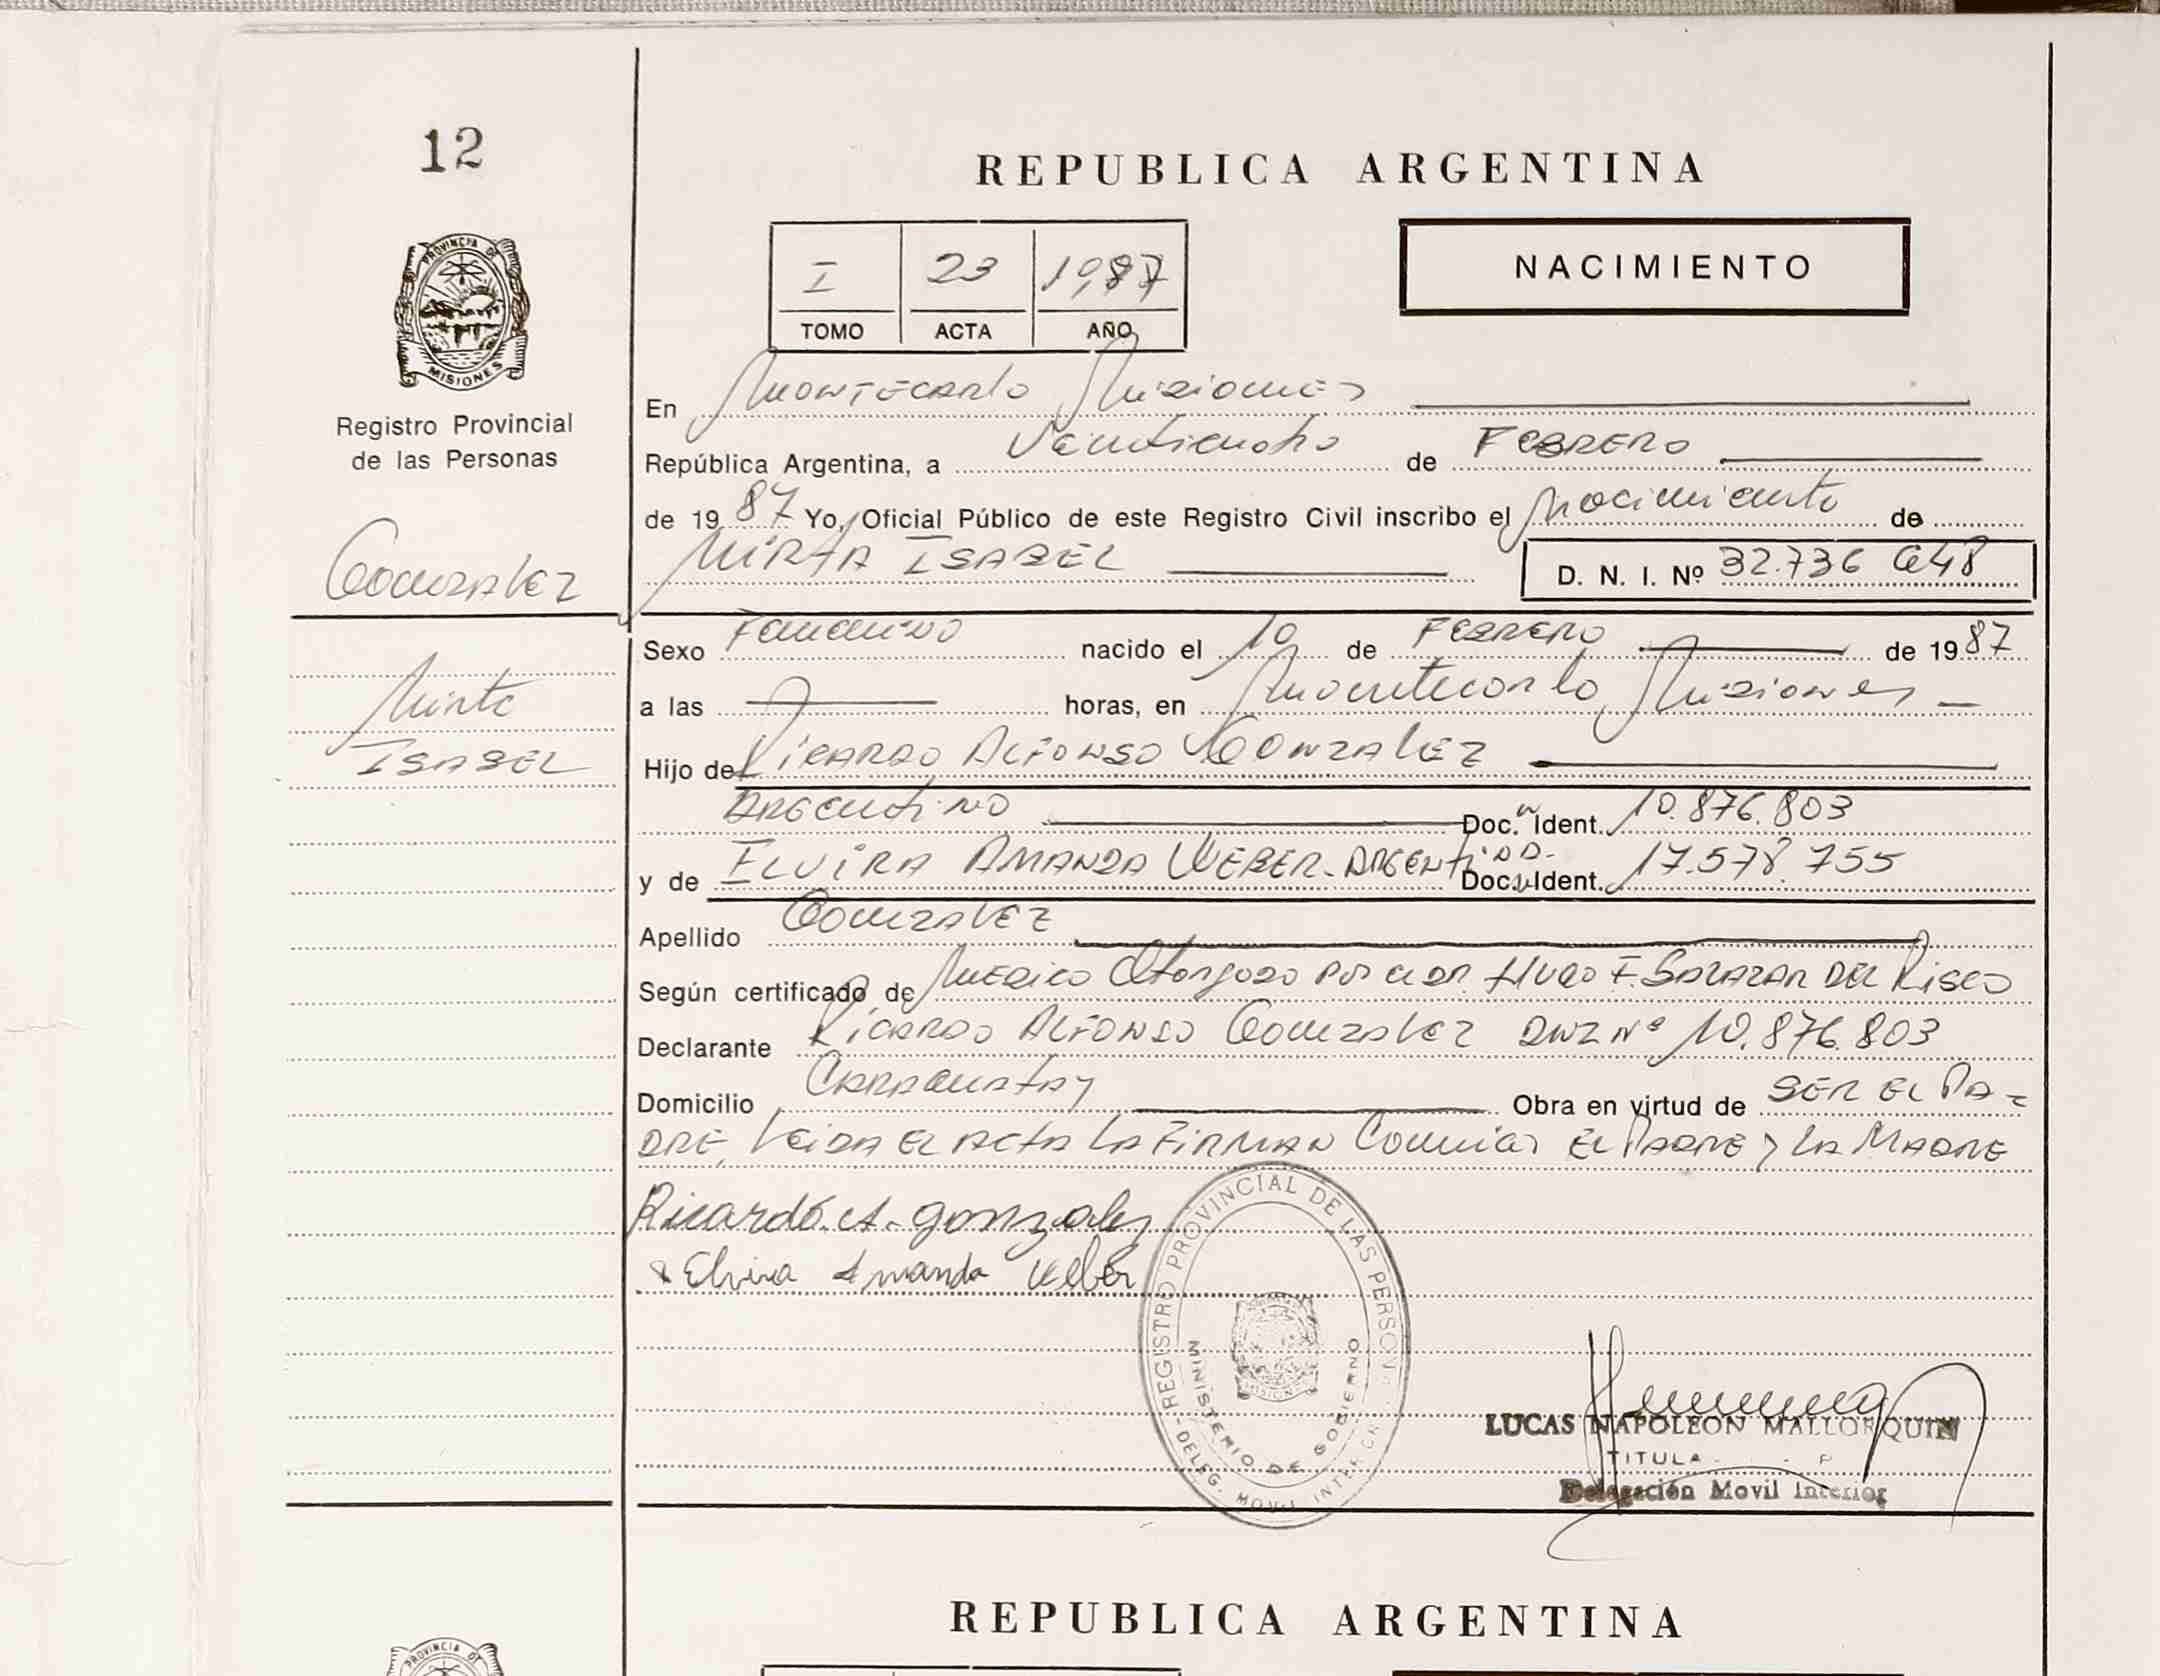 12
REPUBLICA ARGENTINA
PROVINCIA DE
MISIONES
I 23 1987
TOMO ACTA AÑO
NACIMIENTO
Registro Provincial
de las Personas
Gonzalez
Mirta
ISABEL
En Montecarlo Misiones
República Argentina, a Veintiocho de FEBRERO
de 1987 Yo, Oficial Público de este Registro Civil inscribo el Nacimiento de
MIRTA ISABEL D. N. I. Nº 32.736 648
Sexo Femenino nacido el 10 de FEBRERO de 1987
a las horas, en Montecarlo Misiones
Hijo de RICARDO ALFONSO GONZALEZ
Argentino Doc. Ident. 10.876.803
y de ELVIRA AMANDA WEBER - ARGENTINA - Doc. Ident. 17.578.755
Apellido GONZALEZ
Según certificado de MEDICO Otorgado POR el DR. HUGO F. SALAZAR DEL RISCO
Declarante RICARDO ALFONSO GONZALEZ DNI Nº 10.876.803
Domicilio CARAGUATAY Obra en virtud de SER EL PA-
DRE, LEIDA EL ACTA LA FIRMAN El PADRE y LA MADRE
Ricardo A. gonzalez
Elvira Amanda Weber
REGISTRO PROVINCIAL DE LAS PERSON
MINISTERIO DE GOBIERNO
DELEG. MOVIL INTER
MISIONES
LUCAS NAPOLEON MALLORQUIN
TITULA
Delegación Movil Interior
REPUBLICA ARGENTINA
PROVINCIA D